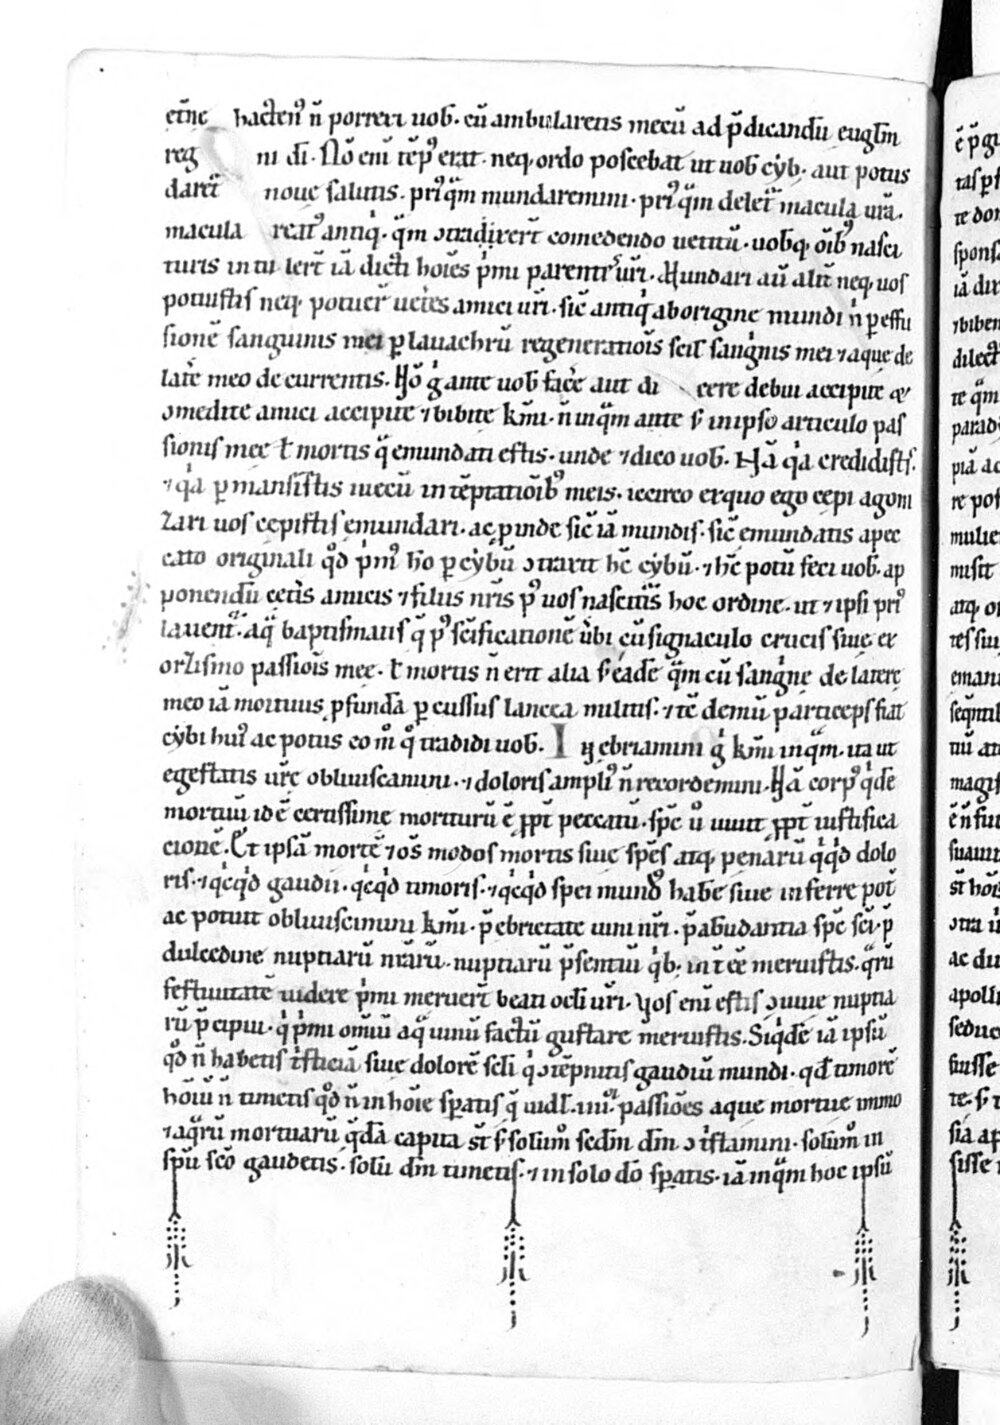 et̄ne hacten᷒ n̄ porrexi uob̄. cū ambularetis mecū ad p̄dicandū euḡlm
reg ni dī. Nō enī tēp᷒ erat. neq; ordo poscebat ut uob̄ cẏb᷒. aut potus
daret̄ noue salutis. pri᷒q̄m mundaremini. pri᷒q̄m deleret̄ macula ur̄a.
macula reat᷒ antiq̍. q̄m ↄtradixert̄ comedendo uetitū. uobq; oīb᷒ nasci
turis intulert̄ iā dicti hoīes p̍mi parentes ur̄i. Mundari aū alit̄ neq; uos
potuistis neq; potuer̄ ueteres amici ur̄i. sic̄ antiq̍ ab origine mundi n̍ p̲ effu
sionē sanguinis mei p̲ lauachrū regeneratiōis scil̄ sang̍nis mei ⁊ aque de
lat̄e meo decurrentis. Nō g̍ ante uob̄ fac̄e aut di cere debui accipite ⁊
ↄmedite amici accipite ⁊ bibite km̄i. n̄ inq̄m ante s; in ipso articulo pas
sionis mee ⁊ mortis q̄ emundati estis. unde ⁊ dico uob̄. Nā q̍a credidistis.
⁊ q̍a p̲mansistis mecū in tēptatiōib᷒ meis. iccirco ex quo ego cepi agoni
zari uos cepistis emundari. ac p̲inde sic̄ iā mundis. sic̄ emundatis a pec
cato originali q̄d p̍m᷒ hō p̲ cẏbū ↄtraxit hc̄ cẏbū. ⁊ hc̄ potū feci uob̄. ap
ponendū cet̄is amicis ⁊ filiis nr̄is p᷒ uos nascitu̅is hoc ordine. ut ⁊ ipsi pri᷒
lauent̄. aq̄ baptismatis q̄ p᷒ sc̄ificationē u̍bi cū signaculo crucis siue ex
orzismo passiōis mee. ⁊ mortis n̄ erit alia s; eadē q̄m cū sang̍ne de latere
meo iā mortuus p̲fundā p̲cussus lancea militis. ⁊ tc̄ demū particeps fiat
cẏbi hui᷒ ac potus eo m̊ q̊ tradidi uob̄. I nebriamini g̍ km̄i inq̄m. ita ut
egestatis ur̄e obliuiscamini. ⁊ doloris ampli᷒ n̄ recordemini. Nā corp᷒ q̍dē
mortuū id ē certissime moriturū ē p̲pt̄ peccatū. sp̄c ů uiuit p̲pt̄ iustifica
cionē. Et ipsā mortē ⁊ oс̄ modos mortis siue spēs atq; penarū q̍q̍d dolo
ris. ⁊ q̍cq̍d gaudii. q̍cq̍d timoris. ⁊ q̍cq̍d spei mund᷒ habē siue inferre pot̄
ac potuit obliuiscimini km̄i. p̄ ebrietate uini nr̄i. p̄ abūdantia sp̄c sc̄i. p̄
dulcedine nuptiarū nr̄arū. nuptiarū p̄sentiū q̍b; int̄ee meruistis. q̄rū
festiuitatē uidere p̍mi meruert̄ beati oc̄li ur̄i. Vos enī estis ↄuiue nuptia
rū p̄cipui. q̍ p̍mi omiū aq̄ uinū factū gustare meruistis. Siq̍dē iā ipsū
q̊d n̄ habetis t̍sticiā siue dolorē sc̄li q̍ ↄtēpnitis gaudiū mundi. qd̄ timorē
hōiū n̄ timetis q̊d n̄ in hōie sp̲atis q̄ uidl̄. mī passiōes aque mortue immo
⁊ aq̄rū mortuarū q̄dā capita st̄ s; solum᷒ sedm̄ dm̄ ↄt̍stamini. solum᷒ in
sp̄u scō gaudetis. solū dm̄ timetis. ⁊ in solo dō sp̲atis. iā inq̄m hoc ipsū